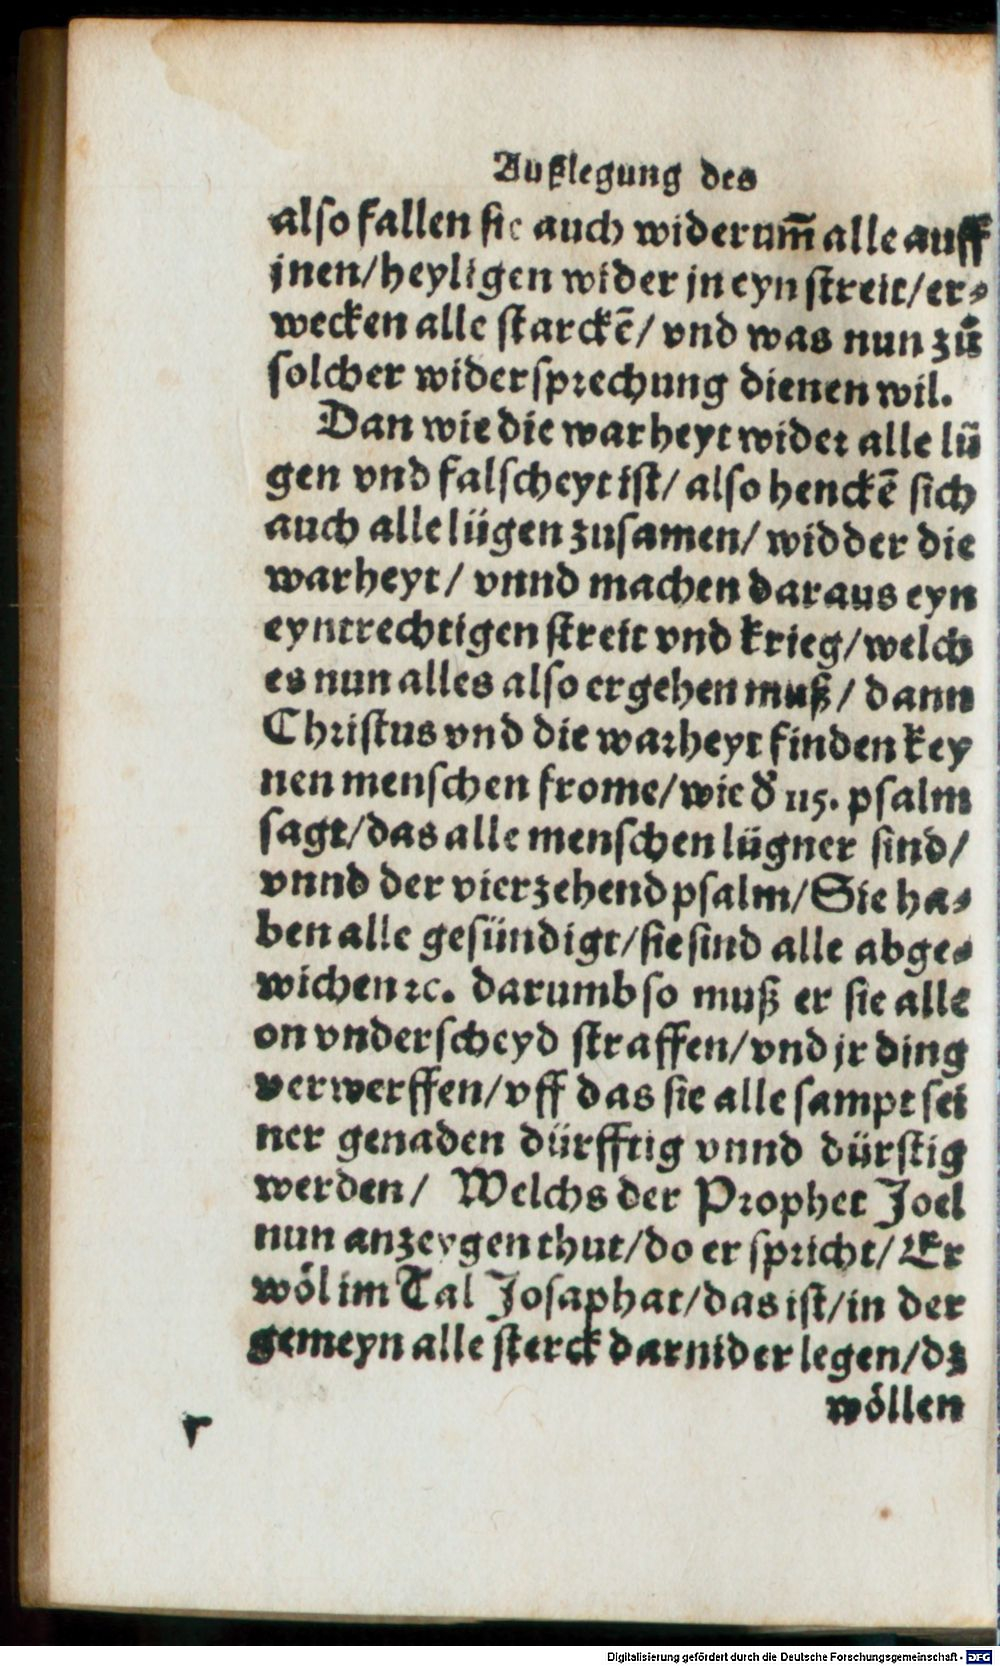 Außlegung des
also fallen sie auch widerum̄ alle auff
jnen/heyligen wider jn eyn streit/er⸗
wecken alle starckē/ vnd was nun zuͦ
solcher widersprechung dienen wil.
Dan wie die warheyt wider alle lü
gen vnd falscheyt ist/ also henckē sich
auch alle lügen zusamen/ widder die
warheyt/ vnnd machen daraus eyn
eyntrechtigen streit vnd krieg/welch
es nun alles also ergehen muß/ dann
Christus vnd die warheyt finden key
nen menschen frome/wie d̕ 115. psalm
sagt/das alle menschen lügner sind/
vnnd der vierzehend psalm/Sie ha⸗
ben alle gesündigt/sie sind alle abge⸗
wichen ꝛc. darumb so muß er sie alle
on vnderscheyd straffen/vnd jr ding
verwerffen/vff das sie alle sampt sei
ner genaden dürfftig vnnd dürstig
werden/ Welchs der Prophet Joel
nun anzeygen thut/do er spricht/ Er
wöl im Tal Josaphat/das ist/in der
gemeyn alle sterck darnider legen/dz
wöllen
Digitalisierung gefördert durch die Deutsche Forschungsgemeinschaft - DFG